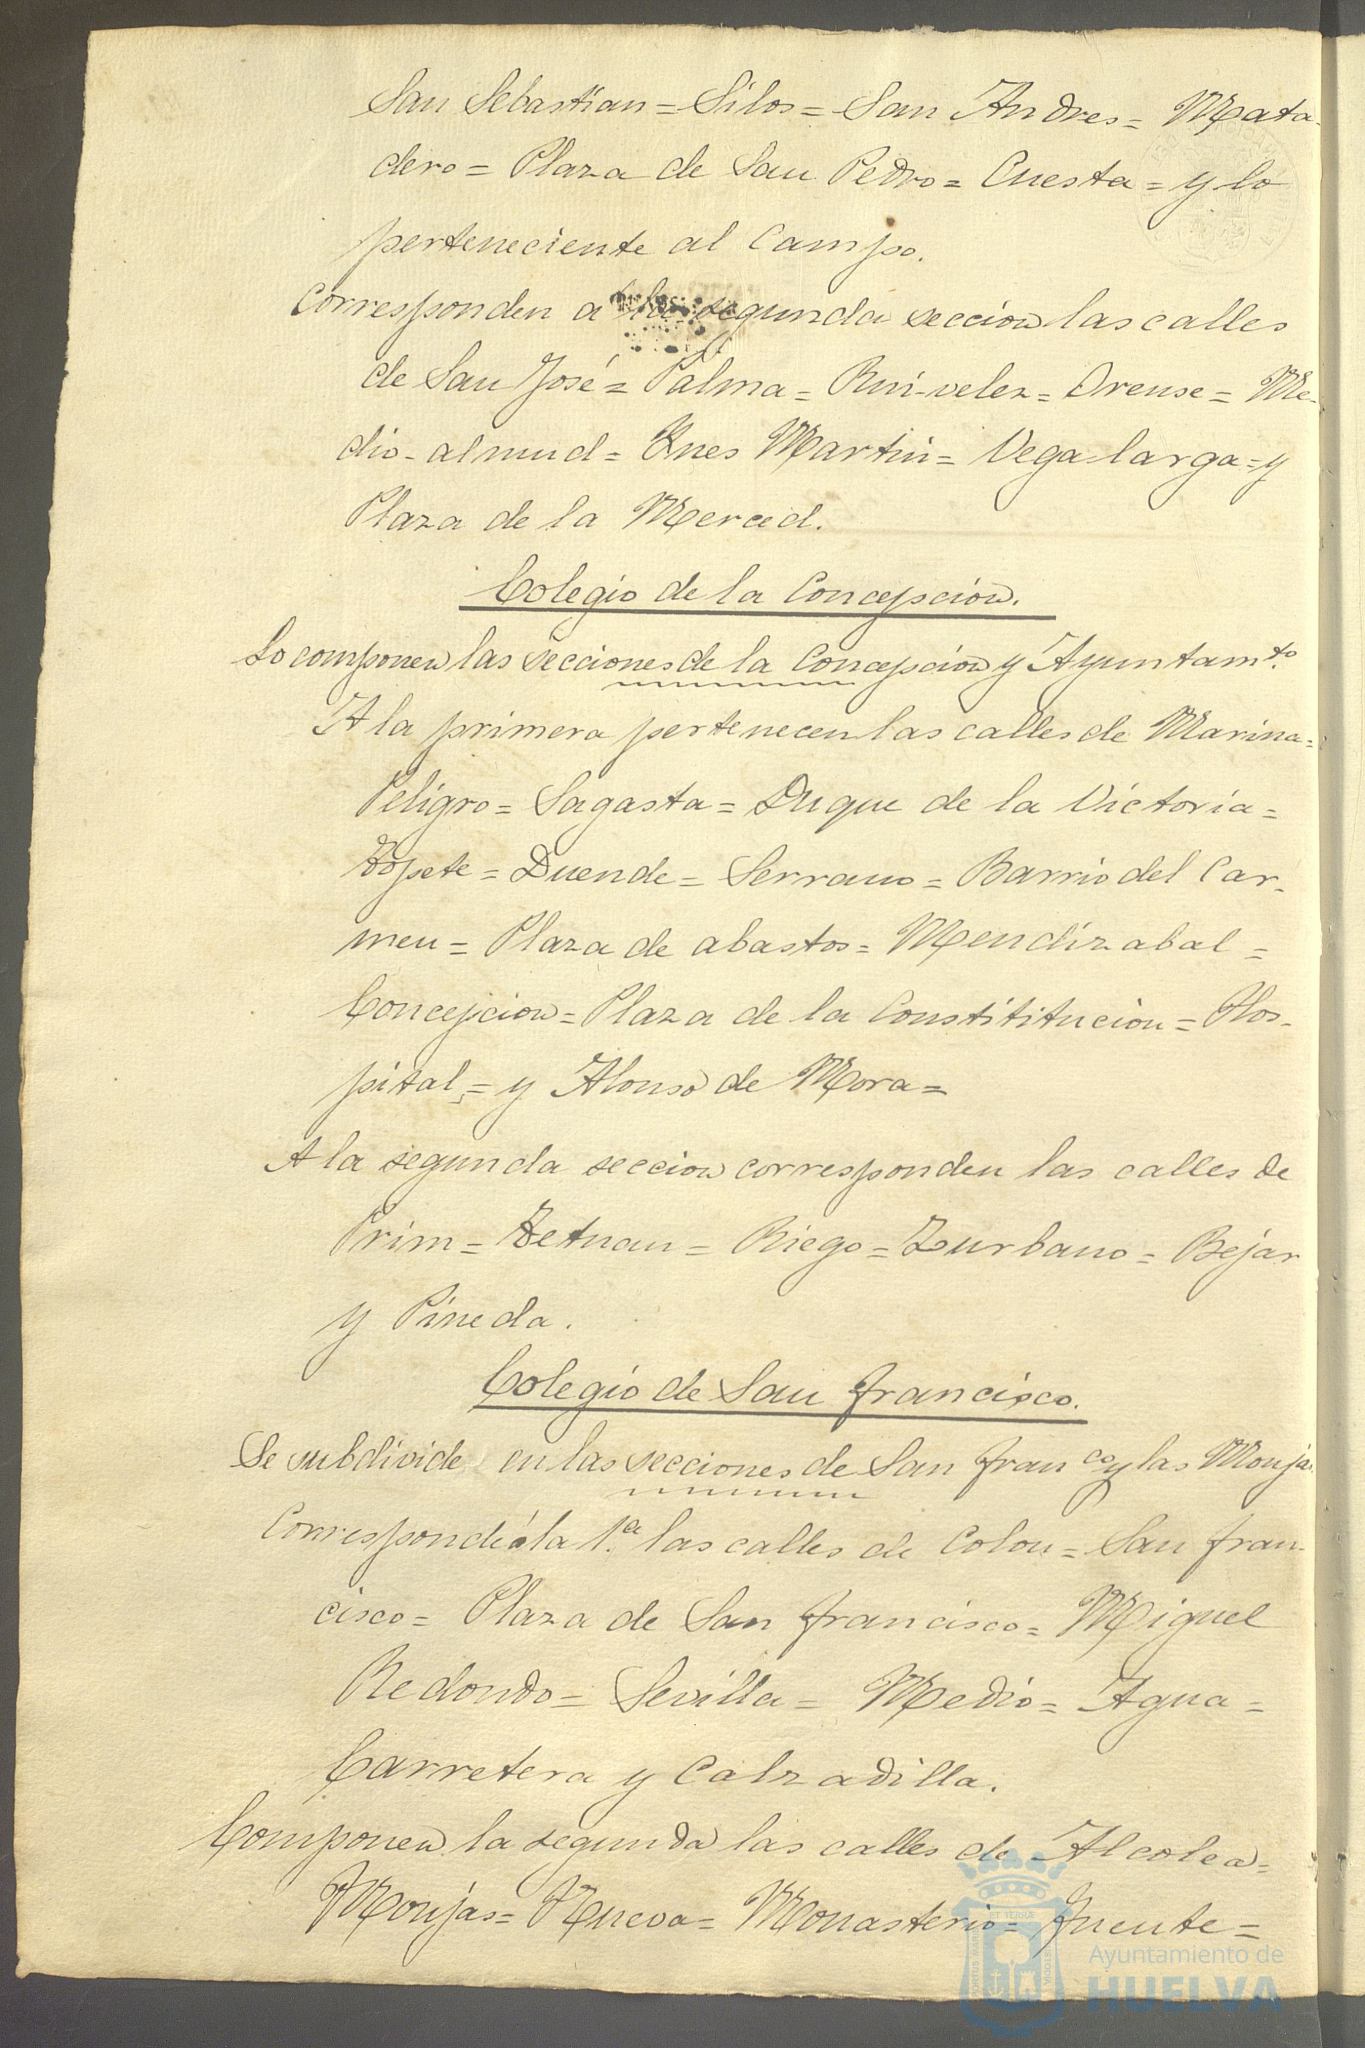 San Sebastian = Silos = San Andres = Mata-
dero = Plaza de San Pedro = Cuesta = y lo
perteneciente al Campo.
Corresponden a la segunda seccion las calles
de San José = Palma = Rui-velez = Orense = Me-
dio-almud = Ynes Martin = Vega-larga = y
Plaza de la Merced.
Colegio de la Concepcion.
Lo componen las secciones de la Concepcion y Ayuntamto.
A la primera pertenecen las calles de Marina =
Peligro = Sagasta = Duque de la Victoria =
Topete = Duende = Serrano = Barrio del Car-
men = Plaza de abastos = Mendizabal =
Concepcion = Plaza de la Constititucion = Hos-
pital = y Alonso de Mora =
A la segunda seccion corresponden las calles de
Prim = Tetuan = Riego = Zurbano = Bejar
y Pineda.
Colegio de San Francisco.
Se subdivide en las secciones de San Franco y las Monjas
Corresponde á la 1.a las calles de Colon = San Fran-
cisco = Plaza de San Francisco = Miguel
Redondo = Sevilla = Medio = Agua =
Carretera y Calzadilla.
Componen la segunda las calles de Alcolea =
Monjas = Nueva = Monasterio = Fuente =
Ayuntamiento de
HUELVA